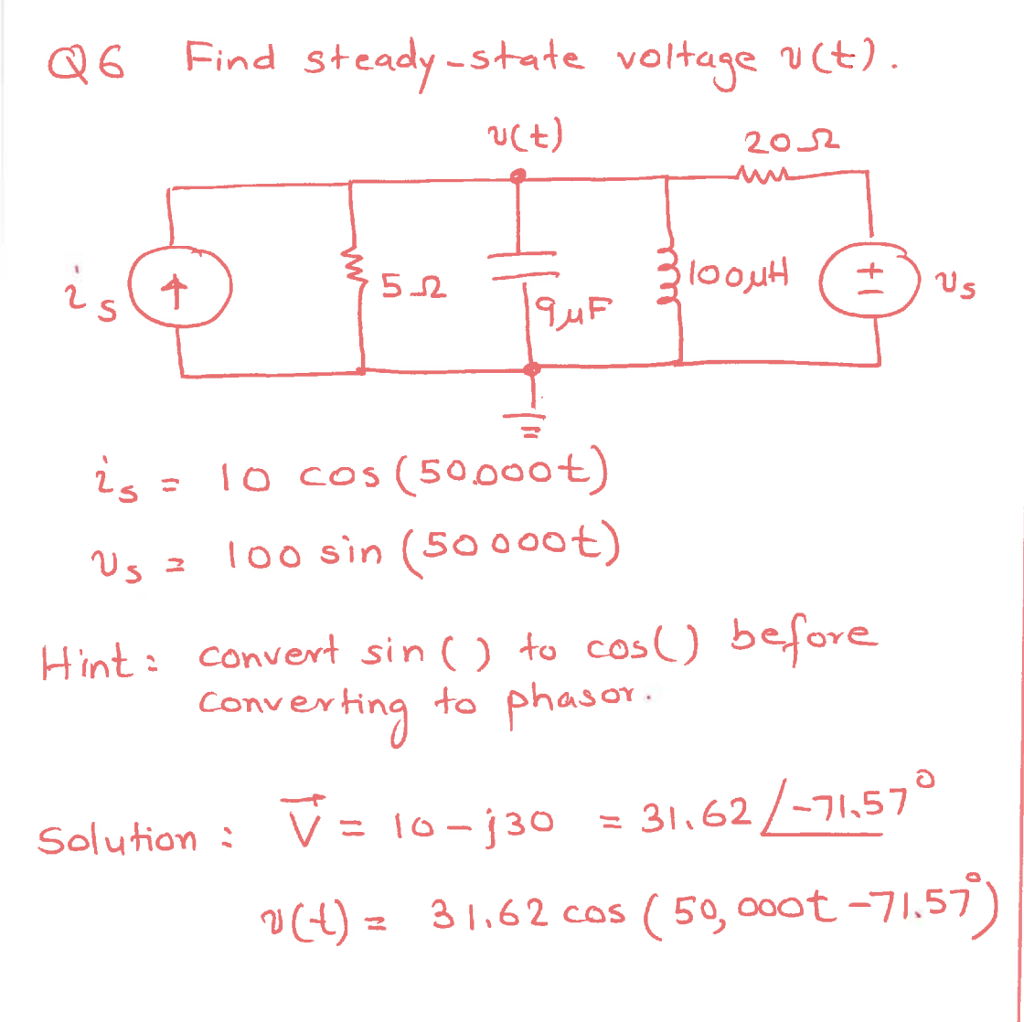 Q6 Find steady-state voltage v(t).
v(t)
20Ω
i_s
5Ω
9μF
100μH
+
−
v_s
i_s = 10 cos (50,000t)
v_s = 100 sin (50 000t)
Hint: convert sin ( ) to cos( ) before
converting to phasor.
Solution: V⃗ = 10 - j30 = 31.62 ∠-71.57°
v(t) = 31.62 cos (50,000t -71.57°)